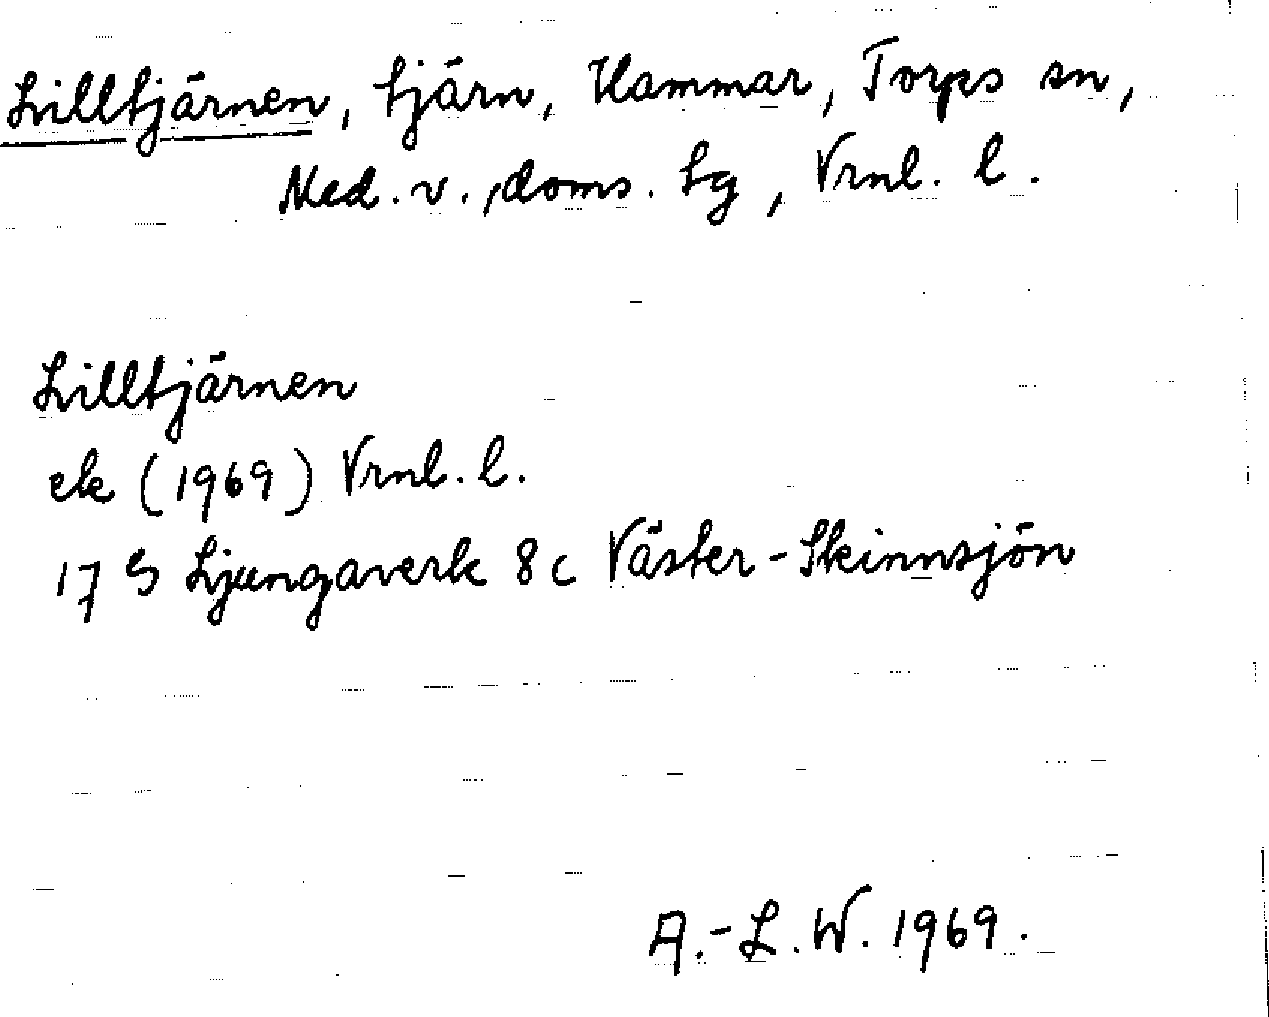 Lilltjärnen, tjärn, Hammar, Torps sn,
Med. v., doms. tg, Vrnl. l.
Lilltjärnen
ek (1969) Vrnl. l.
17 G Ljungaverk 8c Väster-Skinnsjön
A.-L. W. 1969.